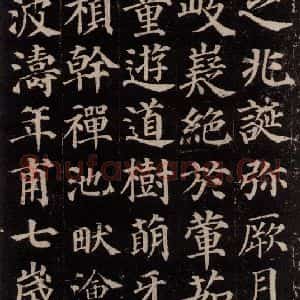 之兆誕弥厥月
岐嶷絕扵葷茹
童遊道樹萌牙
楨幹禪池畎澮
波濤年甫七歲
Shufawang.Cn